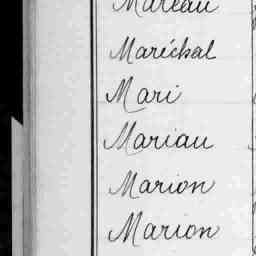 Mareau
Maréchal
Mari
Mariau
Marion
Marion